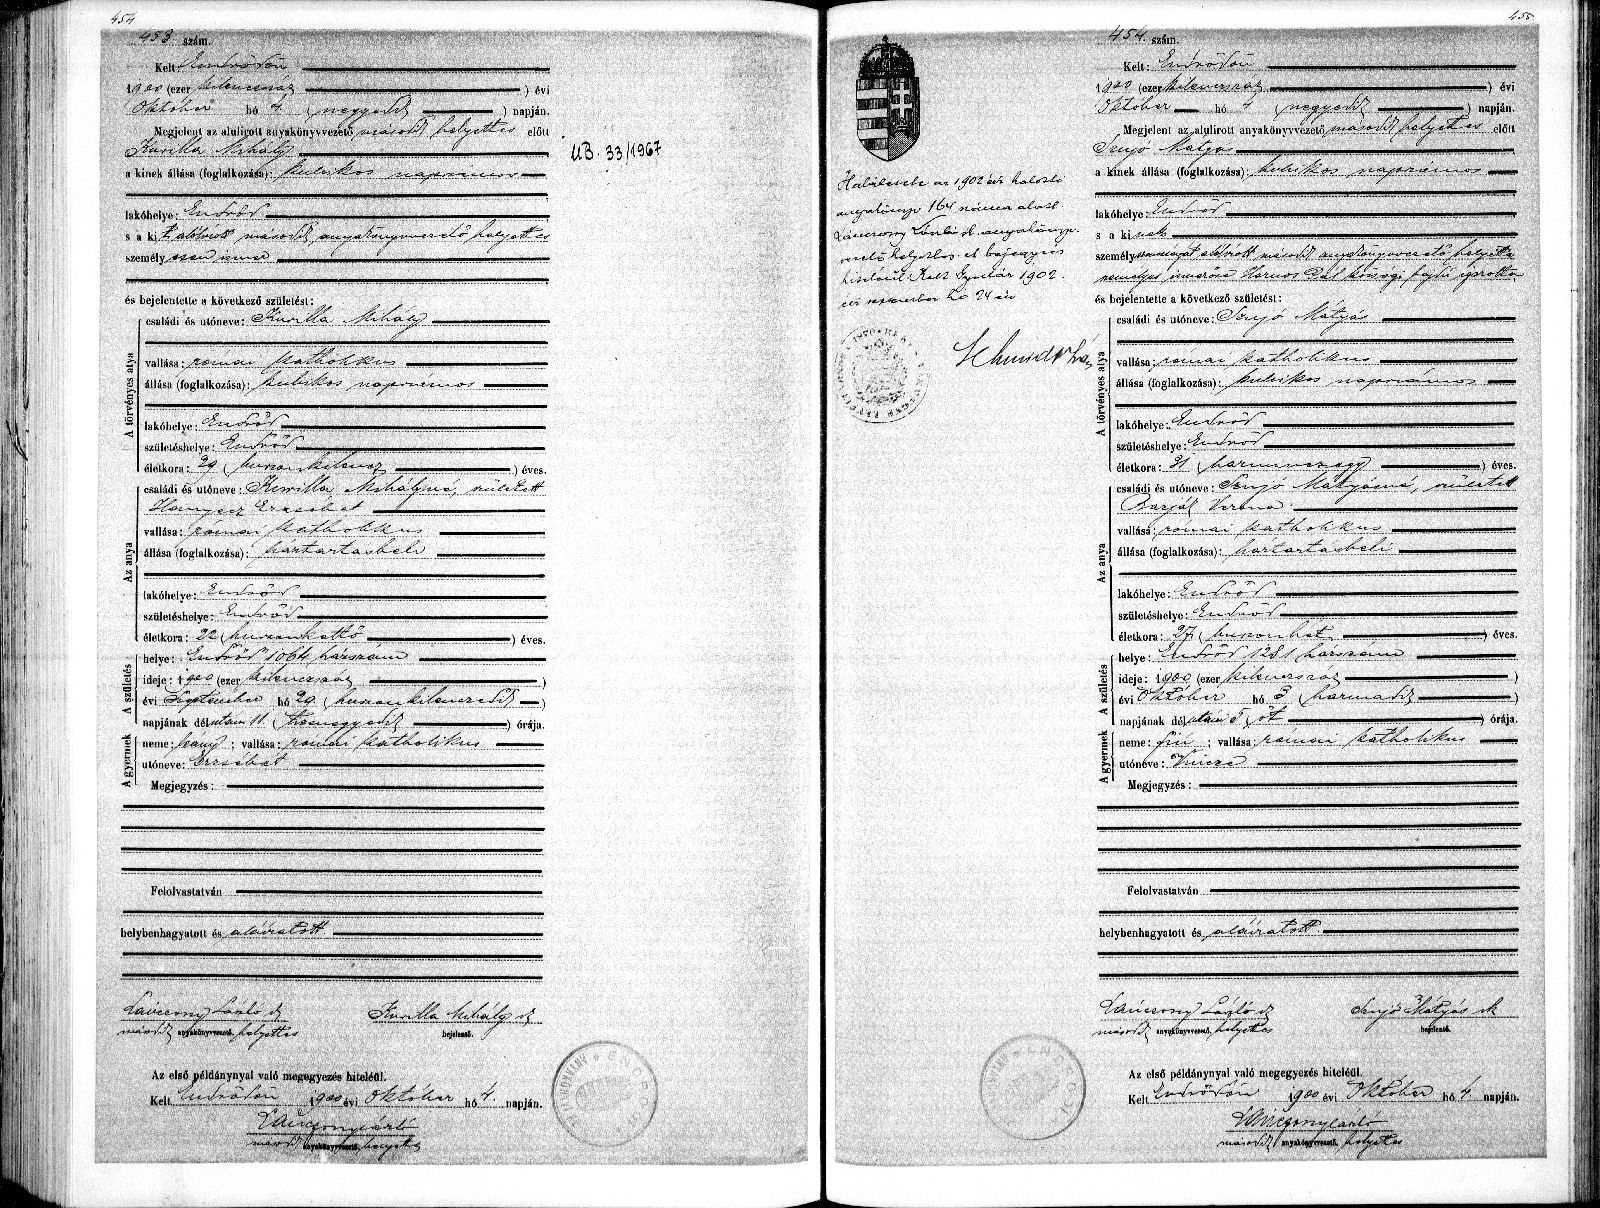 454
453 szám.
Kelt: Endrődön
1900 (ezer kilencszáz) évi
Október hó 4 (negyedik) napján.
Megjelent az alulirott anyakönyvvezető második helyettes előtt
Kurilla Mihály
a kinek állása (foglalkozása): kubikos napszámos
lakóhelye: Endrőd
s a kit alólirott második anyakönyvvezető helyettes
személyesen ismer
és bejelentette a következő születést:
A törvényes atya
családi és utóneve: Kurilla Mihály
vallása: római katholikus
állása (foglalkozása): kubikos napszámos
lakóhelye: Endrőd
születéshelye: Endrőd
életkora: 29 (huszonkilencz) éves.
Az anya
családi és utóneve: Kurilla Mihályné, született
Hanyecz Erzsébet
vallása: római katholikus
állása (foglalkozása): háztartásbeli
lakóhelye: Endrőd
születéshelye: Endrőd
életkora: 22 (huszonkettő) éves.
A születés
helye: Endrőd 1064 házszám
ideje: 1900 (ezer kilencszáz)
évi Szeptember hó 29 (huszonkilenczedik)
napjának délután 11 (tizenegyedik) órája.
A gyermek
neme: leány; vallása: római katholikus
utóneve: Erzsébet
Megjegyzés:
Felolvastatván
helybenhagyatott és aláiratott.
Lánczony László sk
második anyakönyvvezető, helyettes
Kurilla Mihály sk
bejelentő.
Az első példánynyal való megegyezés hiteléül.
Kelt Endrődön 1900 évi Október hó 4. napján.
Lánczony László
második anyakönyvvezető, helyettes
UB. 33/1967
455
Halálesete az 1902 évi halotti
anyakönyv 164 száma alatt
Lánczony László h. anyakönyv-
vezető helyettes
1902.
évi november hó 24 én
454. szám.
Kelt: Endrődön
1900 (ezer kilencszáz) évi
Október hó 4 (negyedik) napján.
Megjelent az alulirott anyakönyvvezető második helyettes előtt
Szujó Mátyás
a kinek állása (foglalkozása): kubikos napszámos
lakóhelye Endrőd
s a kinek
személyazonosságát alólirott második anyakönyvvezető helyettes
személyes ismerőse Harnos Pál községi hajdú igazolta
és bejelentette a következő születést:
A törvényes atya
családi és utóneve: Szujó Mátyás
vallása: római katholikus
állása (foglalkozása): kubikos napszámos
lakóhelye: Endrőd
születéshelye: Endrőd
életkora: 31 (harminczegy) éves.
Az anya
családi és utóneve: Szujó Mátyásné, született
Verona
vallása: római katholikus
állása (foglalkozása): háztartásbeli
lakóhelye: Endrőd
születéshelye: Endrőd
életkora: (huszonhat) éves.
A születés
helye: Endrőd 1281 házszám
ideje: 1900 (ezer kilencszáz)
évi Október hó 3 (harmadik)
napjának délután 5 (öt) órája.
A gyermek
neme: fiú; vallása: római katholikus
utóneve: Vincze
Megjegyzés:
Felolvastatván
helybenhagyatott és aláiratott.
Lánczony László sk
második anyakönyvvezető, helyettes
Szujó Mátyás sk
bejelentő.
Az első példánynyal való megegyezés hiteléül.
Kelt Endrődön 1900 évi Október hó 4. napján.
Lánczony László
második anyakönyvvezető, helyettes